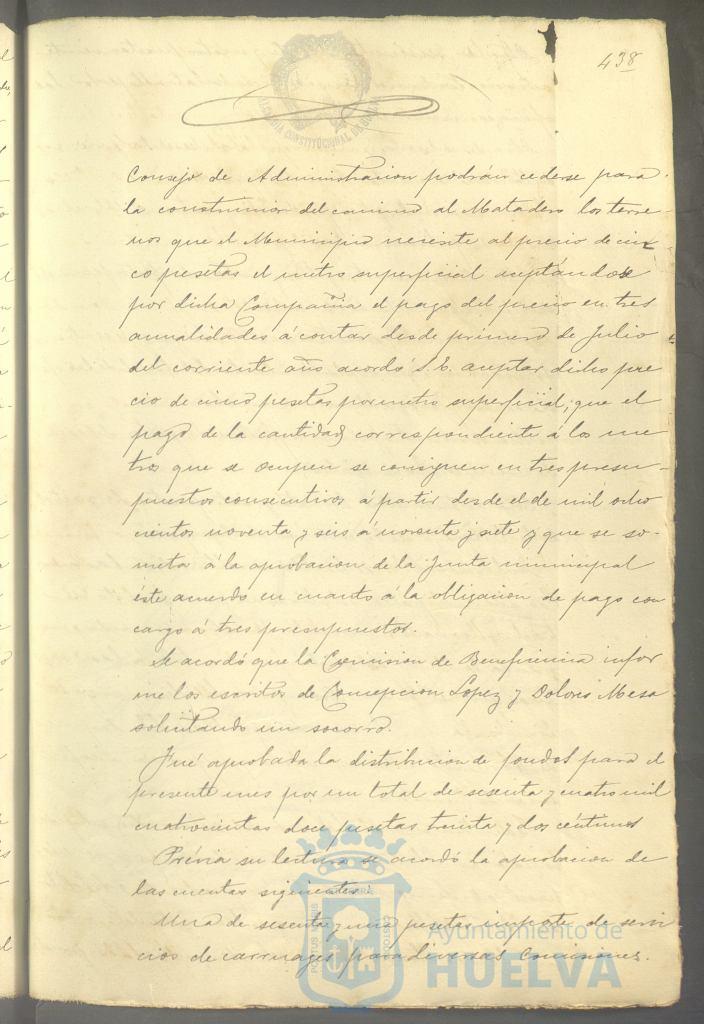 438
ALCALDIA CONSTITUCIONAL DE HUELVA
Consejo de Administracion podrán cederse para
la construccion del camino al Matadero los terre
nos que el Municipio necesite al precio de cin
co pesetas el metro superficial aceptándose
por dicha Compañia el pago del precio en tres
anualidades á contar desde primero de Julio
del corriente año acordó S. E. aceptar dicho pre
cio de cinco pesetas por metro superficial; que el
pago de la cantidad correspondiente á los me
tros que se ocupen se consignen en tres presu-
puestos consecutivos á partir desde el de mil ocho
cientos noventa y seis á noventa y siete y que se so-
meta á la aprobacion de la Junta municipal
éste acuerdo en cuanto á la obligacion de pago con
cargo á tres presupuestos.
Se acordó que la Comision de Beneficencia infor
me los escritos de Concepcion Lopez y Dolores Mesa
solicitando un socorro.
Fué aprobada la distribucion de fondos para el
presente mes por un total de sesenta y cuatro mil
cuatrocientas doce pesetas treinta y dos céntimos
Prévia su lectura se acordó la aprobacion de
las cuentas siguientes:
Una de sesenta y una pesetas importe de servi
cios de carruages para diversas Comisiones.
PORTUS MARIS ET TERRAE CUSTODIA
Ayuntamiento de
HUELVA